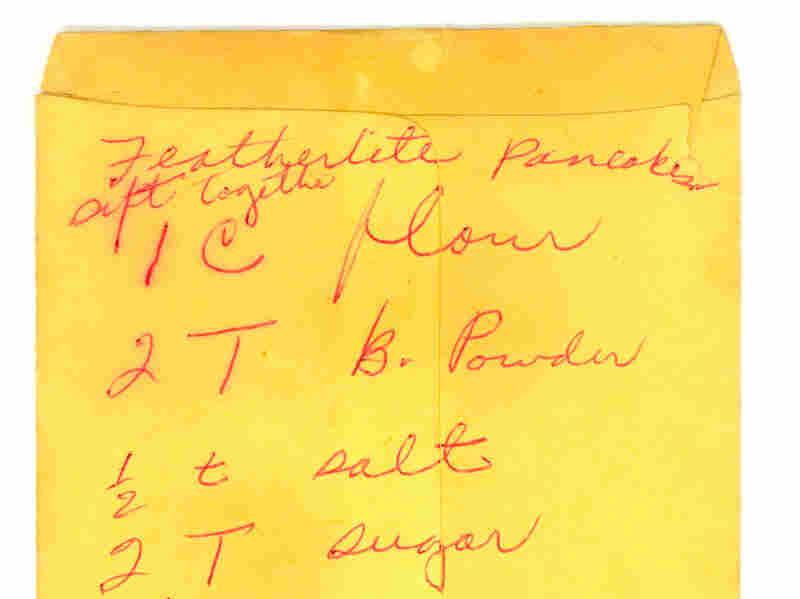 Featherlite Pancakes
Sift togethe
1 C flour
2 T B. Powder
1/2 t salt
2 T sugar